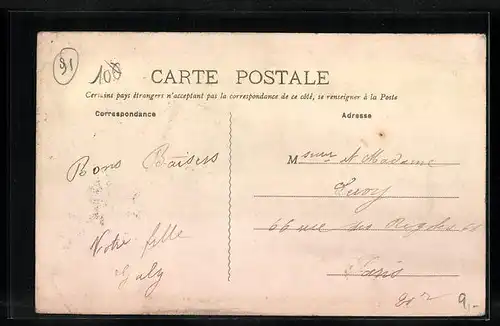 91
108
CARTE POSTALE
Certains pays étrangers n'acceptent pas la correspondance de ce côté, se renseigner à la Poste
Correspondance
Adresse
Bons Baisers
Votre fille
Gaby
Msieur et Madame
66 rue des
Paris
20e
9.-